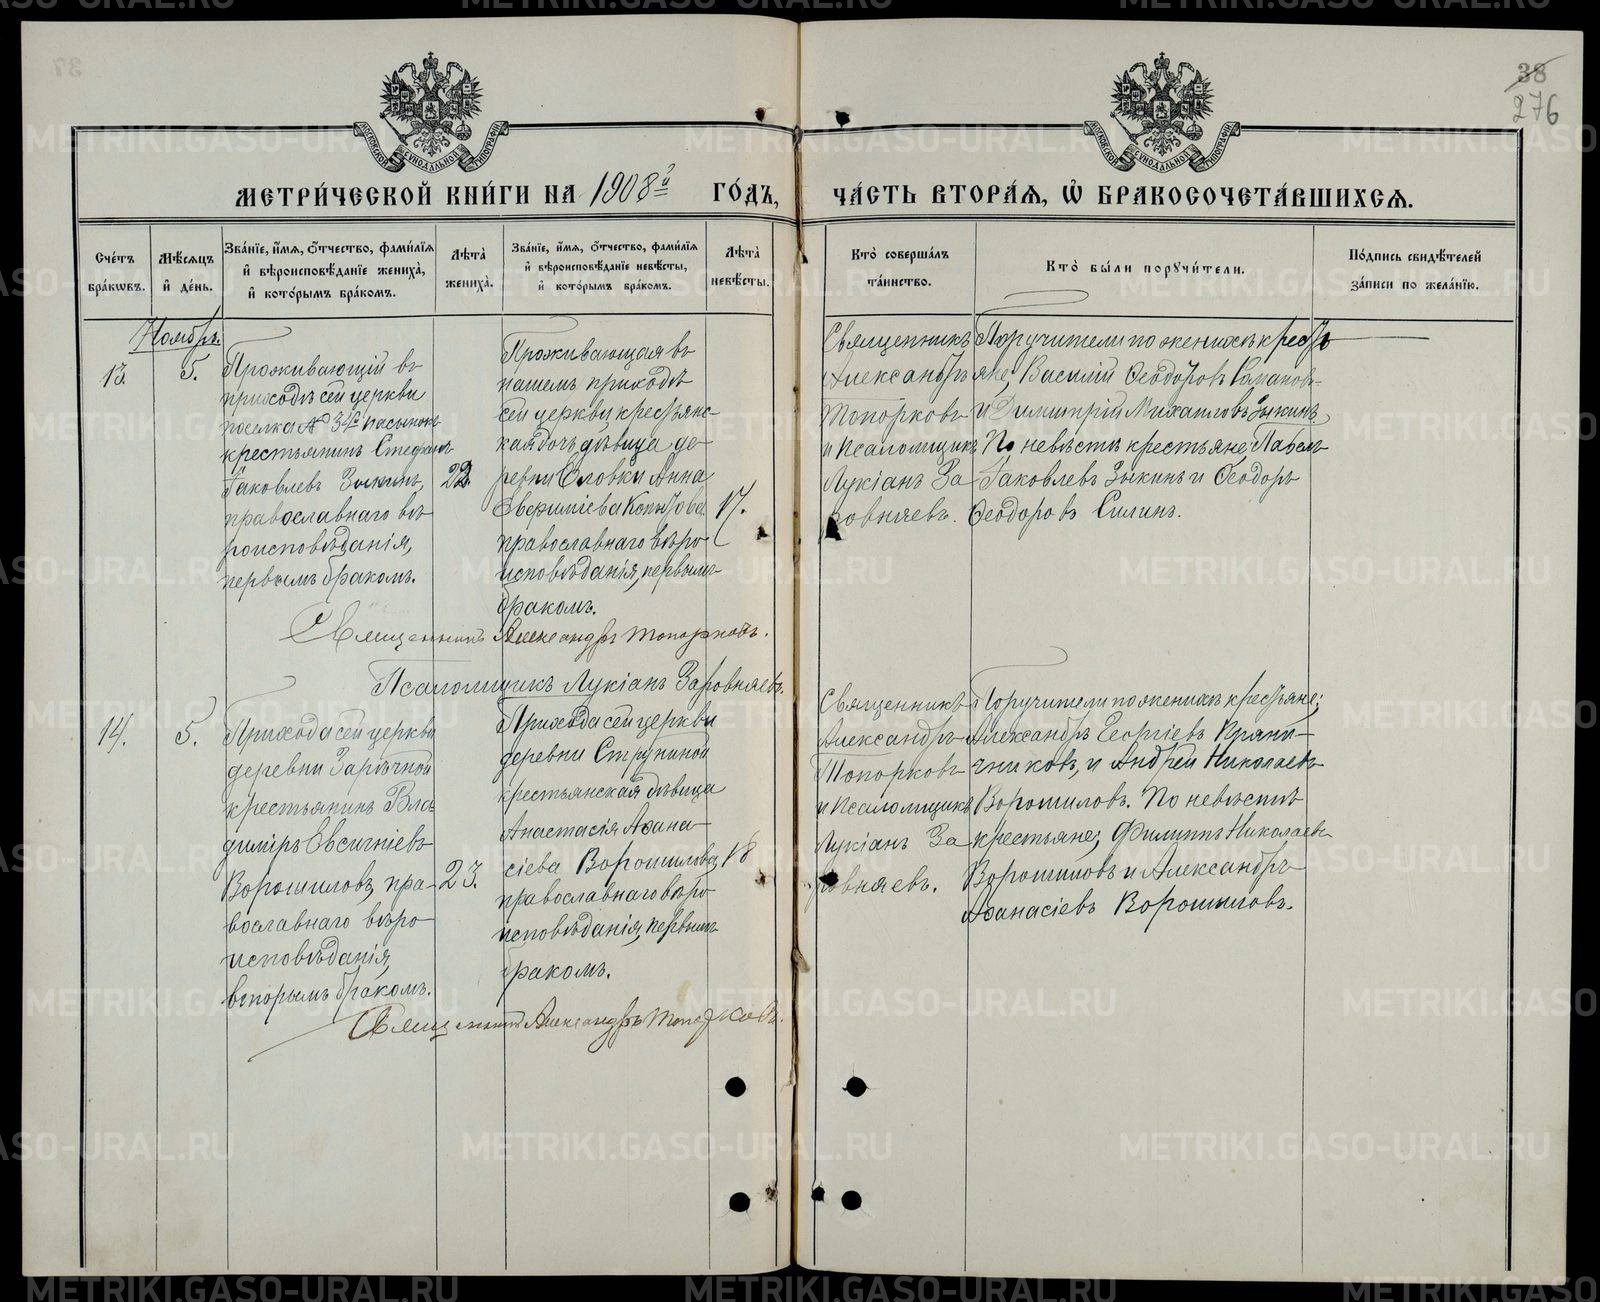 38
276
МЕТРИЧЕСКОЙ КНИГИ НА 1908й ГОДЪ,
ЧАСТЬ ВТОРАЯ, Ѡ БРАКОСОЧЕТАВШИХСЯ.
Счетъ браковъ.
Мѣсяцъ и день.
Званіе, имя, отчество, фамилія и вѣроисповѣданіе жениха, и которымъ бракомъ.
Лѣта жениха.
Званіе, имя, отчество, фамилія и вѣроисповѣданіе невѣсты, и которымъ бракомъ.
Лѣта невѣсты.
Кто совершалъ таинство.
Кто были поручители.
Подпись свидѣтелей записи по желанію.
Ноябрь.
13.
5.
Проживающій въ
приходѣ сей церкви
поселка №
крестьянинъ Стефанъ
Іаковлевъ Зыкинъ,
православнаго вѣ-
роисповѣданія,
первымъ бракомъ.
22
Проживающая въ
нашемъ приходѣ
сей церкви крестьянс-
кая дочь дѣвица де-
ревни Еловки Анна
Евфиміева
православнаго вѣро-
исповѣданія, первымъ
бракомъ.
17.
Священникъ
Александръ
Топорковъ
и Псаломщикъ
Лукіанъ За
ровняевъ.
Поручители по женихѣ крестья
яне; Василій Ѳеодоровъ
и Димитрій Михаиловъ Зыкинъ
По невѣстѣ крестьяне; Павелъ
Іаковлевъ Зыкинъ и Ѳеодоръ
Ѳеодоровъ Силинъ.
Священникъ Александръ Топорковъ.
Псаломщикъ Лукіанъ Заровняевъ.
14.
5.
Прихода сей церкви
деревни Зарѣчной
крестьянинъ Вла
диміръ Евсигніевъ
Ворошиловъ, пра-
вославнаго вѣро
исповѣданія,
вторымъ бракомъ.
23.
Прихода сей церкви
деревни Струниной
крестьянская дѣвица
Анастасія Аѳана-
сіева Ворошилова,
православнаго вѣро
исповѣданія, первымъ
бракомъ.
18
Священникъ
Александръ
Топорковъ
и Псаломщикъ
Лукіанъ За
ровняевъ.
Поручители по женихѣ крестьяне;
Александръ Георгіевъ Пряни-
чниковъ, и Андрей Николаевъ
Ворошиловъ. По невѣстѣ
крестьяне; Филиппъ Николаевъ
Ворошиловъ и Александръ
Аѳанасіевъ Ворошиловъ.
Священникъ Александръ Топорковъ.
METRIKI.GASO-URAL.RU